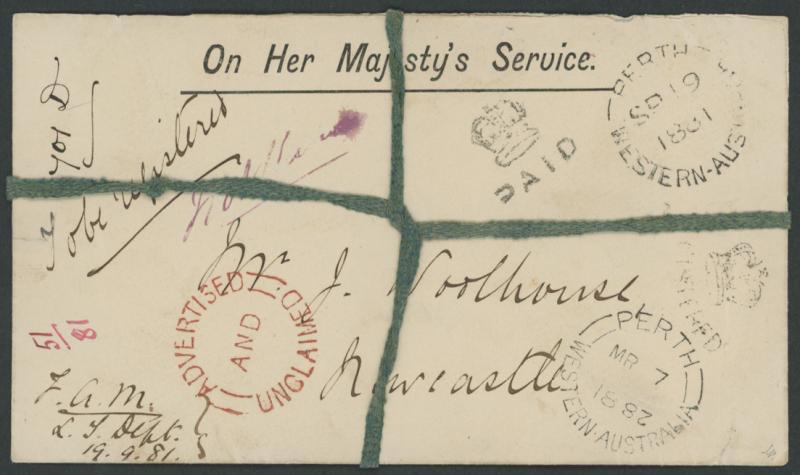 On Her Maj sty's Service.
PERTH
SP 19
1881
WESTERN-AUS
PAID
To be Registered
Mr. J. Woolhouse
Newcastle
ADVERTISED
AND
UNCLAIMED
51/81
F.A.M.
L. T. Dept.
19.9.81.
PERTH
MR 7
1882
WESTERN-AUSTRALIA